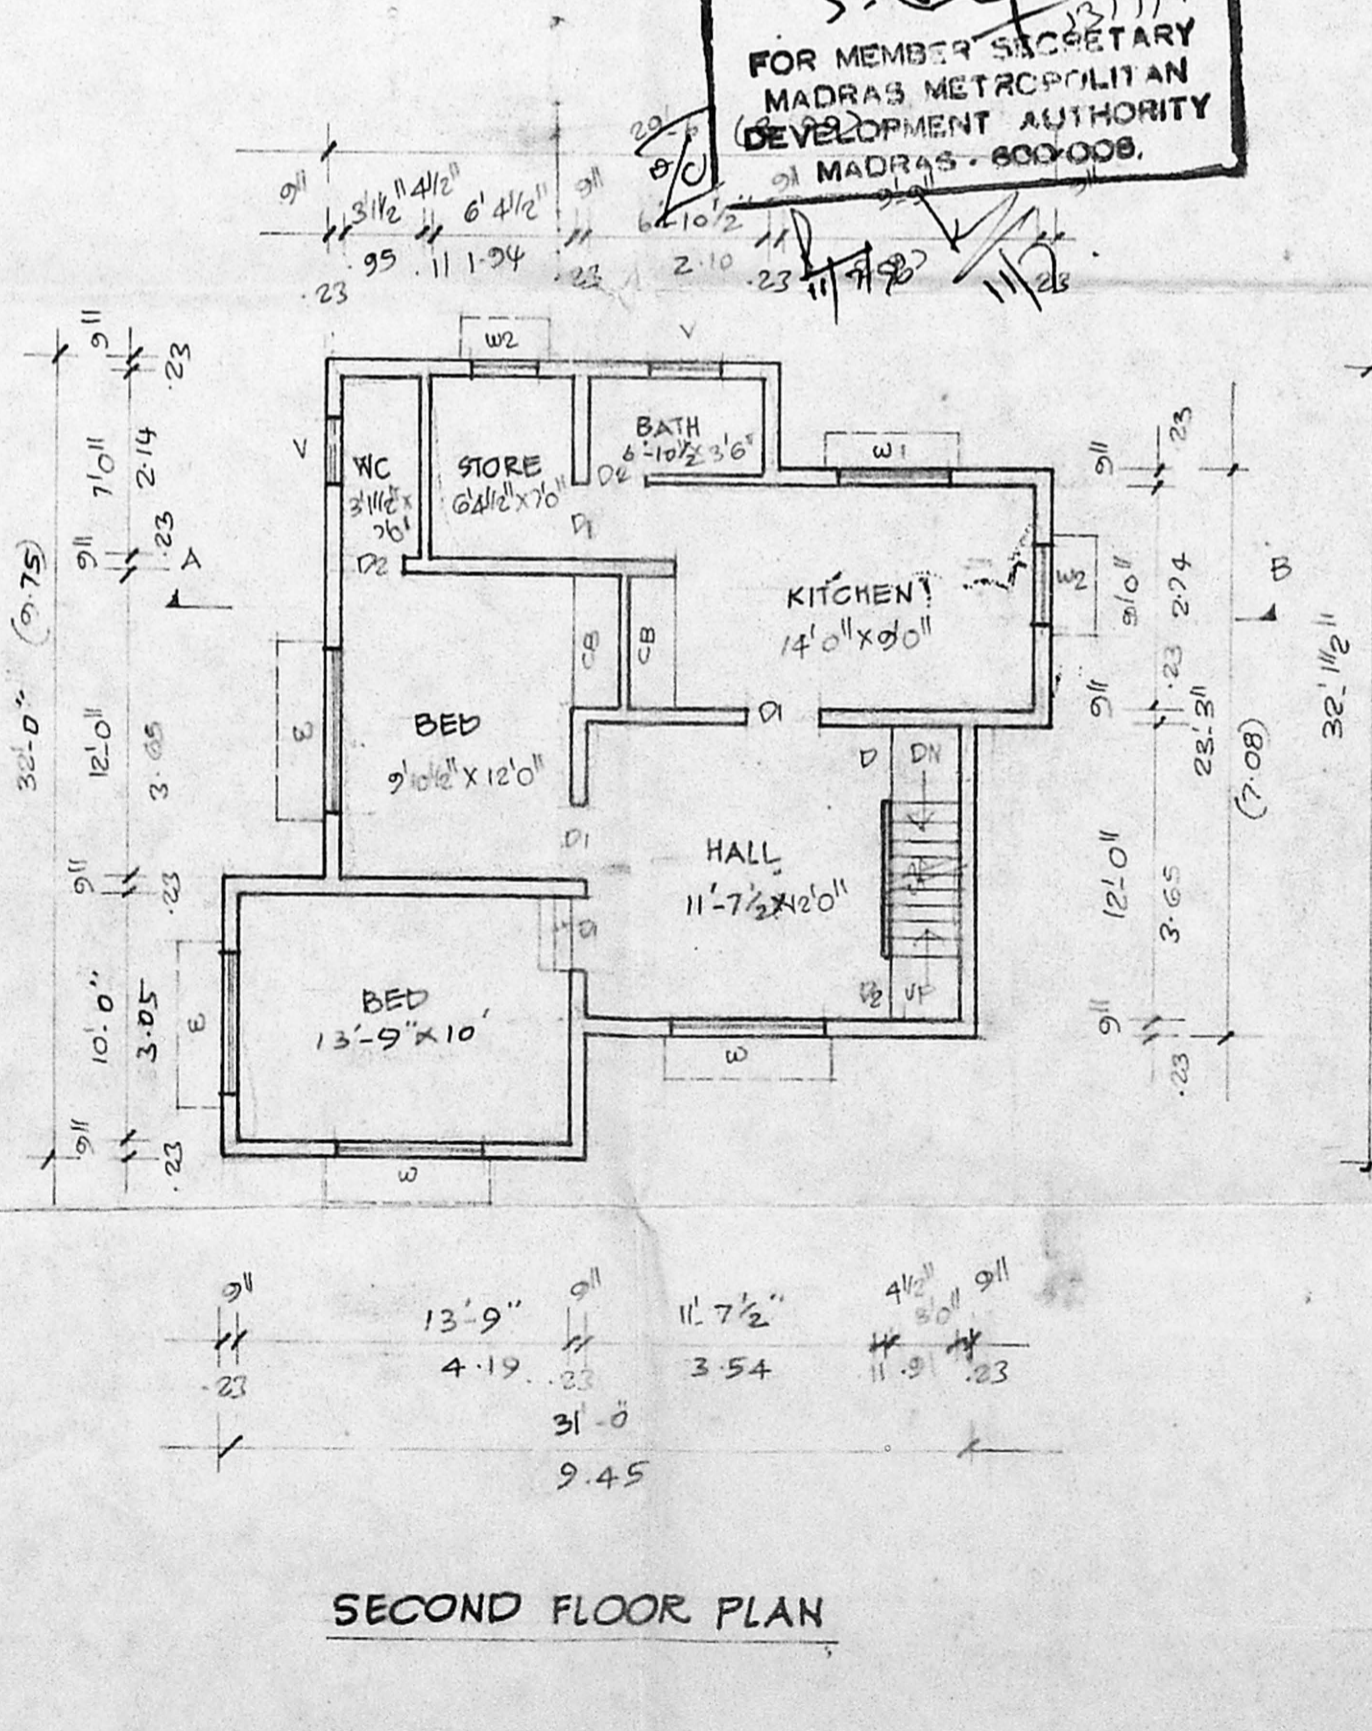 FOR MEMBER SECRETARY
MADRAS METROPOLITAN
DEVELOPMENT AUTHORITY
MADRAS. 600-008.
9" 3'1½" 4½" 6'4½" 9" 6'-10½" 9" 9'-9" 9"
.23 .95 .11 1.94 .23 2.10 .23 .23
W2 V
9" .23
7'0" 2.14
9" .23
12'0" 3.65
9" .23
10'-0" 3.05
9" .23
32'-0" (9.75)
V
A
WC
3'1½" x
7'0"
STORE
6'4½" x 7'0"
BATH
6'-10½ x 3'6"
D2
D1
D2
W1
KITCHEN
14'0" x 9'0"
W2
B
CB
CB
D1
W
BED
9'10½" x 12'0"
D1
D
DN
HALL
11'-7½ x 12'0"
UP
W
W
BED
13'-9" x 10'
W
9" .23
9'0" 2.74
9" .23
12'-0" 3.65
9" .23
23'-3" (7.08)
32'-1½"
9" 13'-9" 9" 11'-7½" 4½" 3'0" 9"
.23 4.19 .23 3.54 11 .91 .23
31'-0"
9.45
SECOND FLOOR PLAN